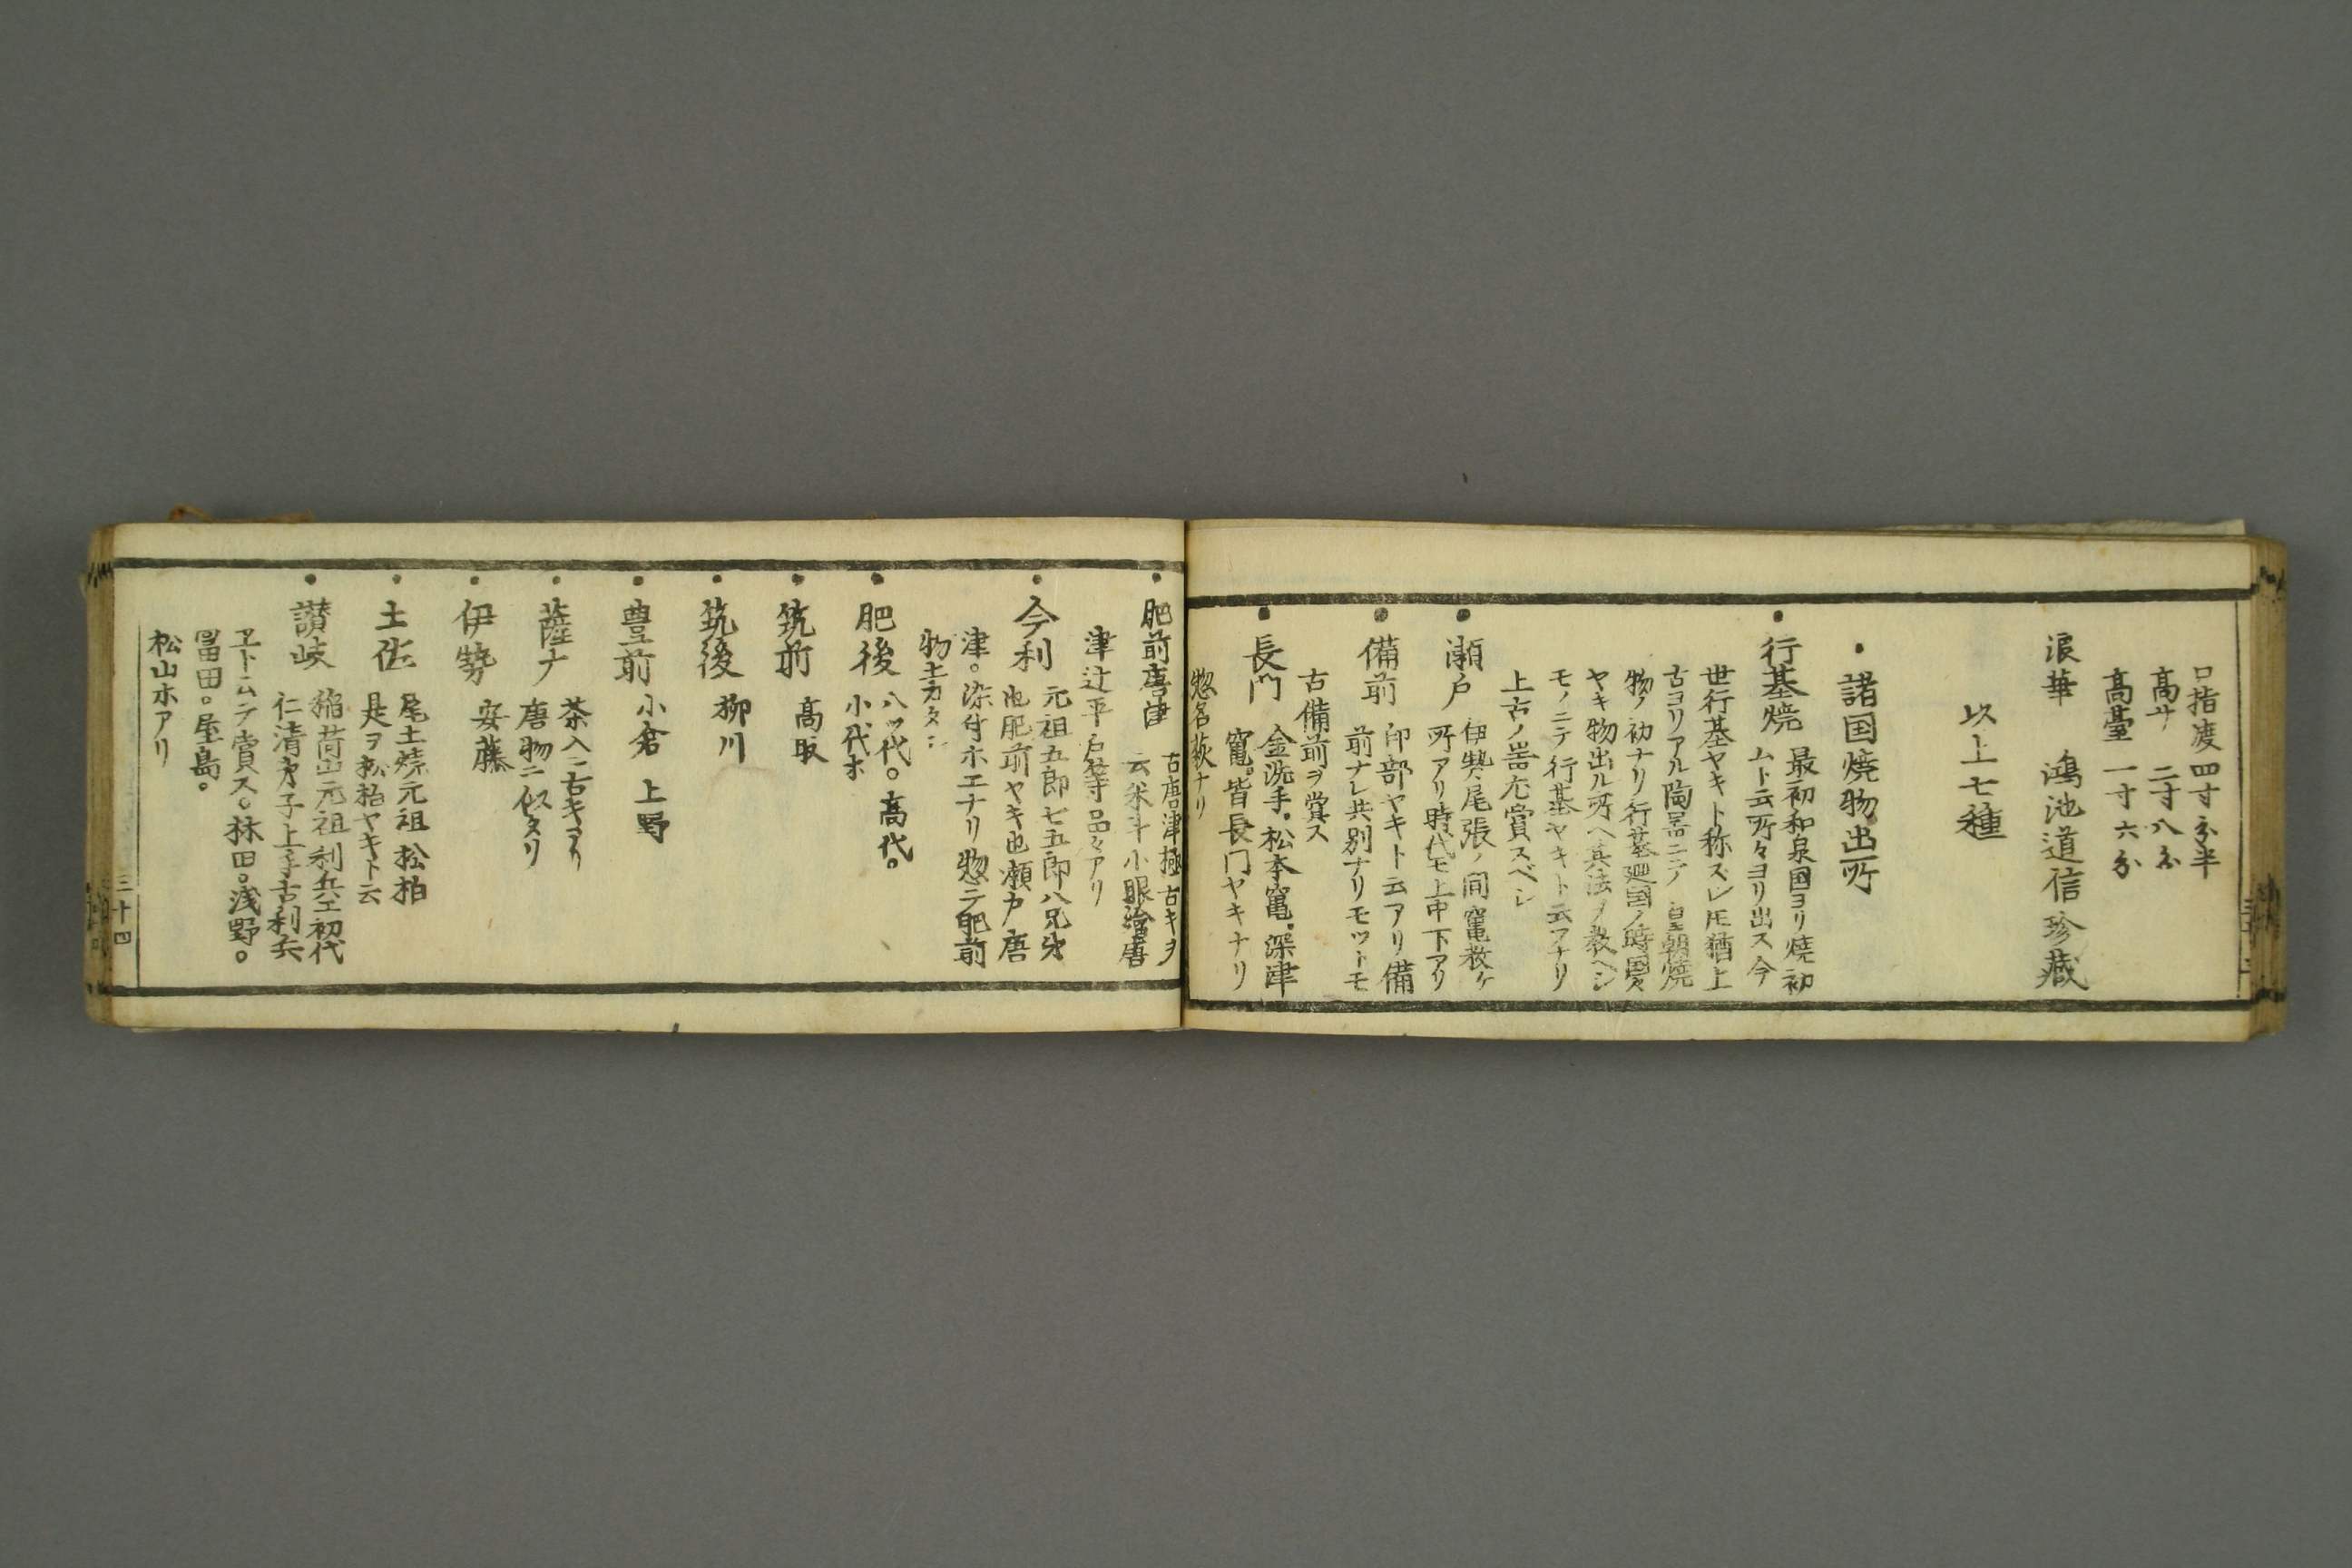 口指渡四寸分半
高サ 二寸八分
高臺 一寸六分
浪華 鴻池道信珍藏
以上七種
・諸国焼物出所
・行基焼 最初和泉国ヨリ焼初
ムト云所々ヨリ出ス今
世行基ヤキト称スレ𪜈猶上
古ヨリアル陶器ニテ 皇朝焼
物ノ初ナリ行基廻国ノ時国々
ヤキ物出ル所ヘ其法ヲ教ヘシ
モノニテ行基ヤキト云フナリ
上古ノ器尤賞スベシ
・瀬戸 伊勢尾張ノ間窯数ケ
所アリ時代モ上中下アリ
・備前 印部ヤキト云アリ備
前ナレ共別ナリモツトモ
古備前ヲ賞ス
・長門 金洗手・松本窯・深津
窯。皆長门ヤキナリ
惣名萩ナリ
・肥前唐津 古唐津極古キヲ
云米斗小眼繪唐
津辻平戸等品々アリ
・今利 元祖五郎七五郎八兄弟
也肥前ヤキ也瀬戸唐
津。染付ホエナリ惣テ肥前
物土カタシ
・肥後 八ツ代。高代。
小代ホ
・筑前 高取
・筑後 柳川
・豊前 小倉 上野
・薩ナ 茶入ニ古キヨリ
唐物ニ似タリ
・伊勢 安藤
・土佐 尾土焼元祖松柏
是ヲ松柏ヤキト云
・讃岐 稲荷山元祖利兵エ初代
仁清カ子上手古利兵
ヱトムテ賞ス。林田。浅野。
冨田。屋島。
松山ホアリ
三十四